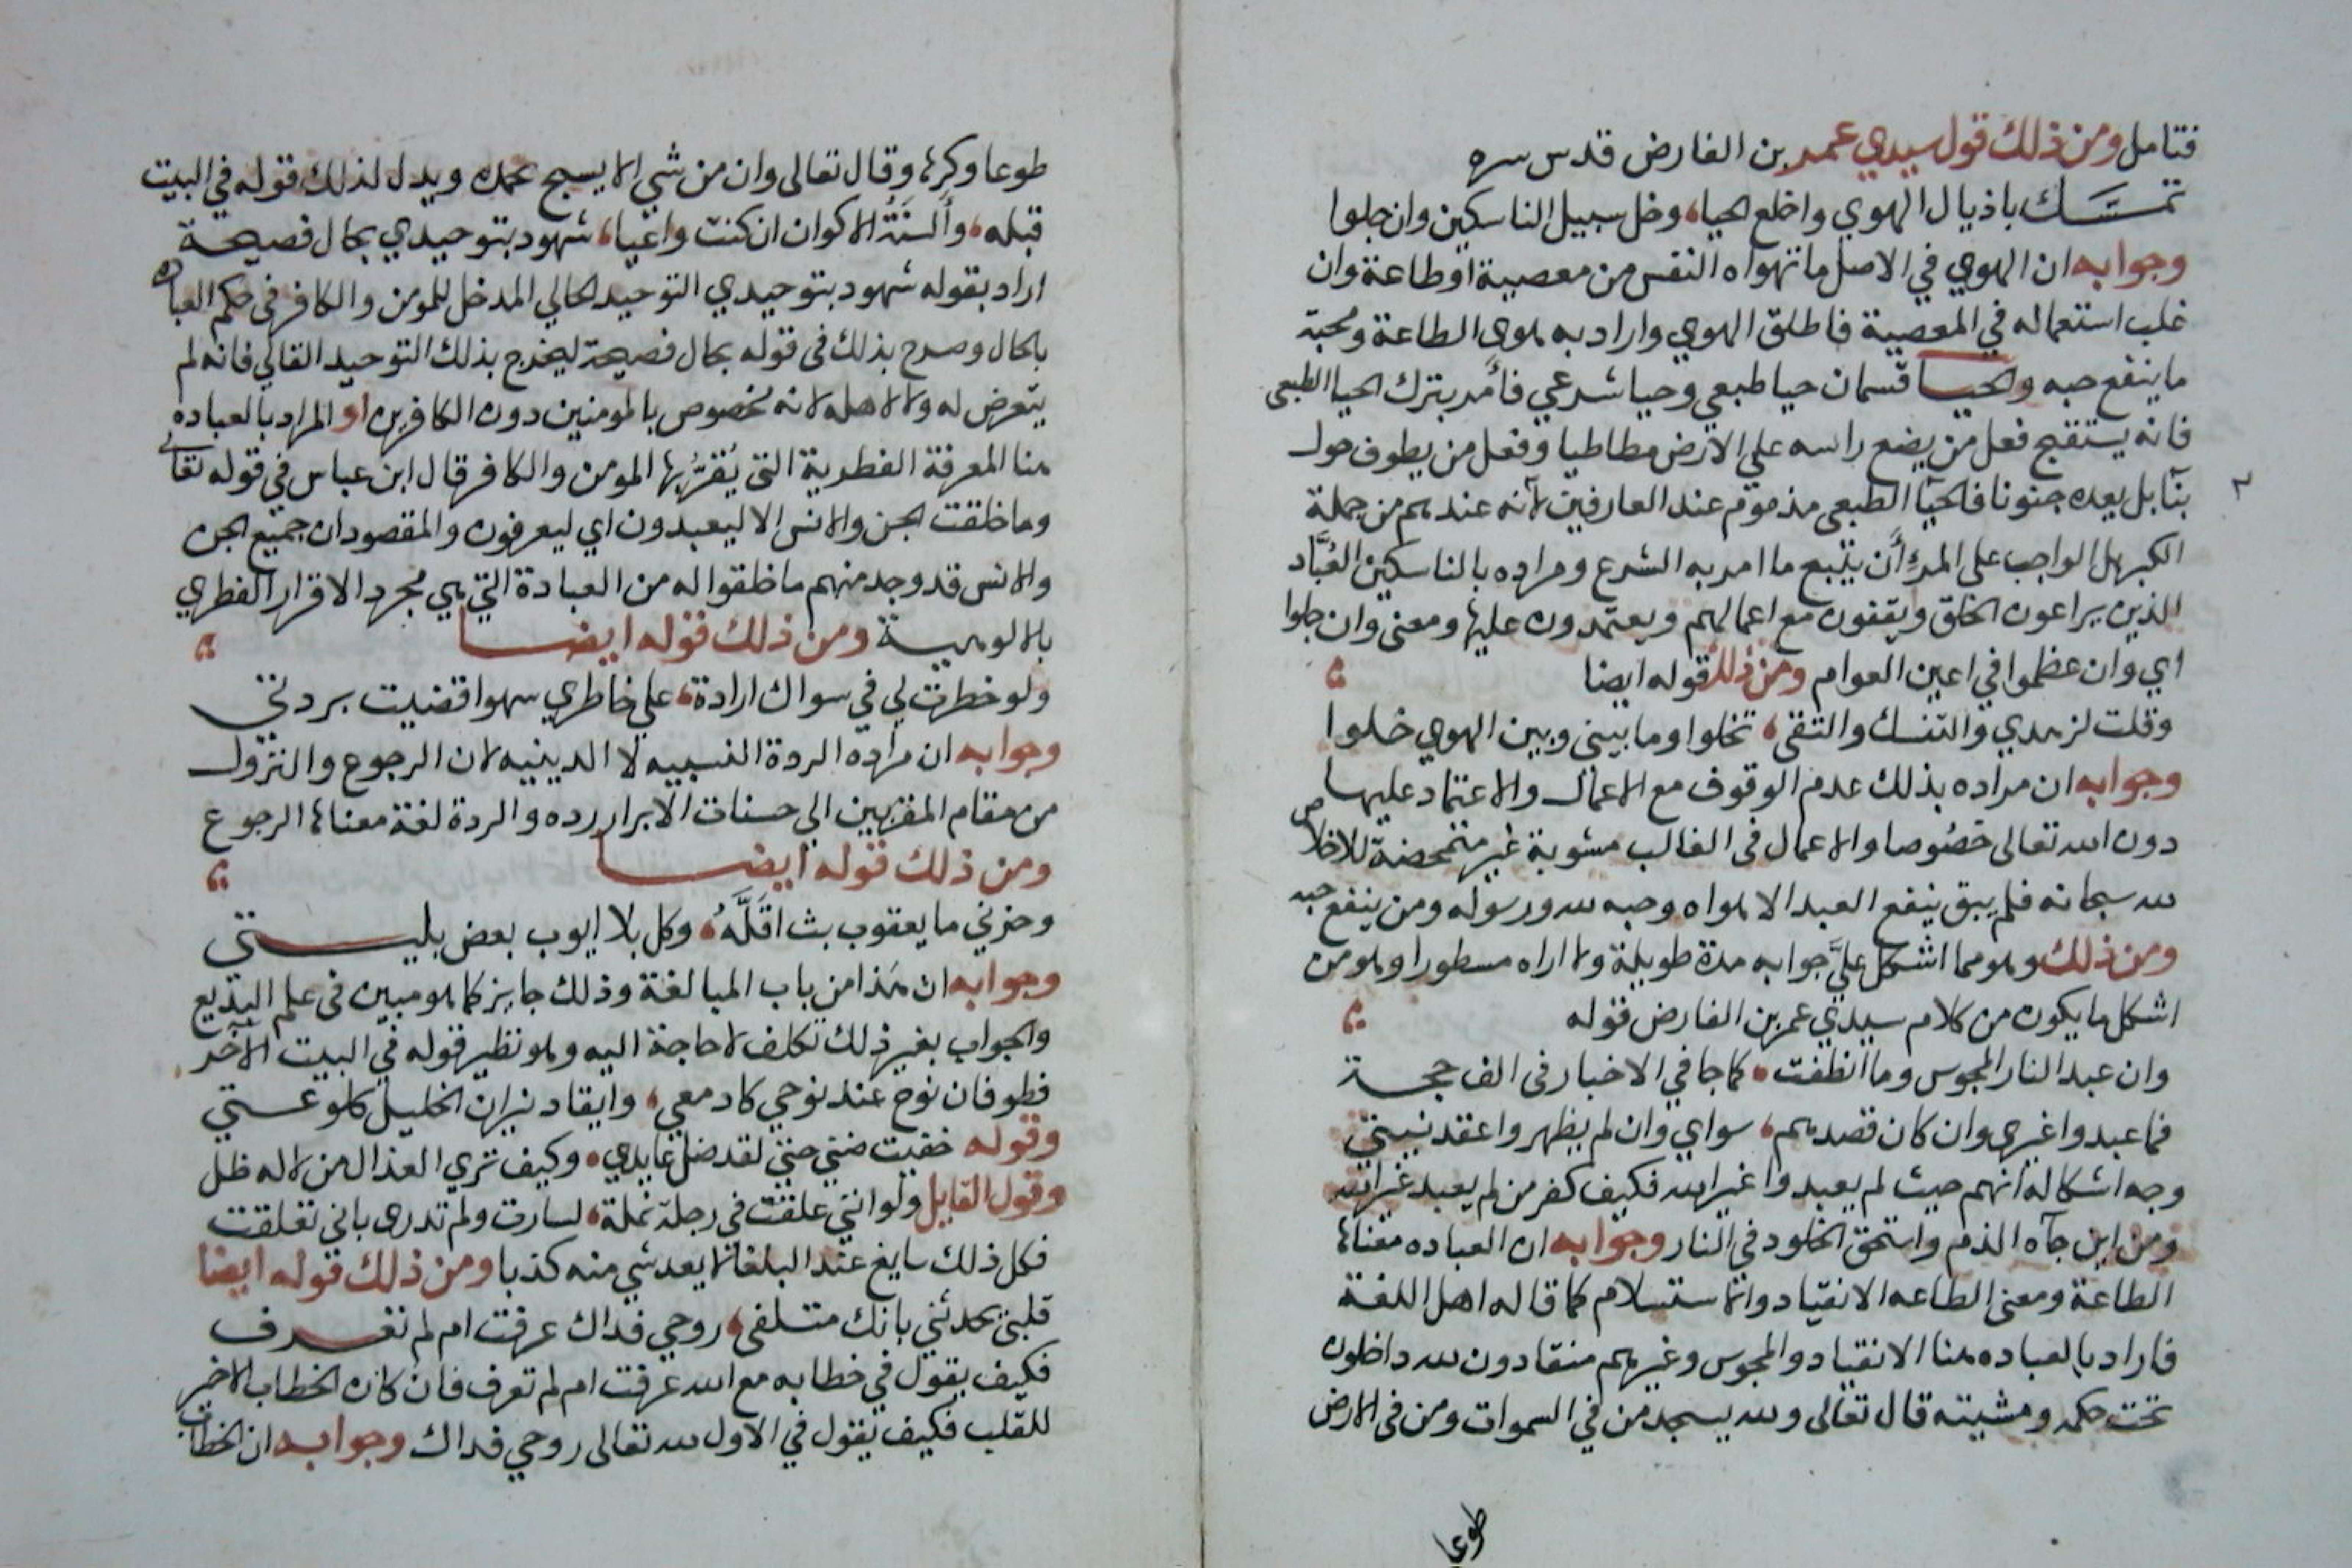 فتامل ومن ذلك قول سيدي عمر بن الفارض قدس سره
تمسك باذيال الهوي واخلع الحيا، وخل سبيل الناسكين وان جلوا
وجوابه ان الهوي في الاصل ما تهواه النفس من معصية او طاعة وان
غلب استعماله في المعصية فاطلق الهوي واراد به هوى الطاعة ومحبة
ما ينفع حبه والحيا قسمان حيا طبعي وحيا شرعي فأمر بترك الحيا الطبعي
فانه يستقبح فعل من يضع راسه علي الارض مطاطيا وفعل من يطوف حول
بنآ بل يعده جنونا فالحيآ الطبعي مذموم عند العارفين لأنه عندهم من جملة
الكبر بل الواجب على المرء أن يتبع ما امر به الشرع ومراده بالناسكين العُبَّاد
الذين يراعون الخلق ويقفون مع اعمالهم ويعتمدون عليها ومعنى وان جلوا
اي وان عظموا في اعين العوام ومن ذلك قوله ايضا
وقلت لزهدي والتنسك والتقى، تخلوا وما بيني وبين الهوي خلوا
وجوابه ان مراده بذلك عدم الوقوف مع الاعمال والاعتماد عليها
دون الله تعالى خصوصا والاعمال في الغالب مشوبة غير متمحضة للاخلاص
لله سبحانه فلم يبق ينفع العبد الا هواه وحبه لله ورسوله ومن ينفع حبه
ومن ذلك وهو مما اشكل عليَّ جوابه مدة طويلة ولا اراه مسطورا وهو من
اشكل ما يكون من كلام سيدي عمر بن الفارض قوله
وان عبد النار المجوس وما انطفت، كما جا في الاخبار في الف حجة
فما عبدوا غيري وان كان قصدهم، سواي وان لم يظهروا عقد نيتي
وجه اشكاله انهم حيث لم يعبدوا غير الله فكيف كفر من لم يعبد غير الله
ومن اين جآه الذم واستحق الخلود في النار وجوابه ان العباده معناها
الطاعة ومعنى الطاعه الانقياد والاستسلام كما قاله اهل اللغة
فاراد بالعباده هنا الانقياد والمجوس وغيرهم منقادون لله داخلون
تحت حكمه ومشيته قال تعالى ولله يسجد من في السموات ومن في الارض
طوعا
طوعا وكرها وقال تعالى وان من شي الا يسبح بحمده ويدل لذلك قوله في البيت
قبله، وأَلسنَةُ الاكوان ان كنت واعيا، شهود بتوحيدي بحال فصيحة
اراد بقوله شهود بتوحيدي التوحيد الحالي المدخل للمومن والكافر في حكم العباده
بالحال وصرح بذلك في قوله بحال فصيحة ليخرج بذلك التوحيد القالي فانه لم
يتعرض له ولا لاهله لانه مخصوص بالمومنين دون الكافرين او المراد بالعباده
هنا المعرفة الفطرية التي يُقرُّ بها المومن والكافر قال ابن عباس في قوله تعالى
وما خلقت الجن والانس الا ليعبدون اي ليعرفون والمقصود ان جميع الجن
والانس قد وجد منهم ما خلقوا له من العبادة التي هي مجرد الاقرار الفطري
بالالوهية ومن ذلك قوله ايضا
ولو خطرت لي في سواك ارادة، علي خاطري سهوا قضيت بردتي
وجوابه ان مراده الردة النسبيه لا الدينيه لان الرجوع والنزول
من مقام المقربين الي حسنات الابرار رده والردة لغة معناها الرجوع
ومن ذلك قوله ايضا
وحزني ما يعقوب بث اقَلَّهُ، وكل بلا ايوب بعض بليتي
وجوابه ان هَذا من باب المبالغة وذلك جايز كما هو مبين في علم البديع
والجواب بغير ذلك تكلف لا حاجة اليه وهو نظير قوله في البيت الآخر
فطوفان نوح عند نوحي كادمعي، وايقاد نيران الخليل كلوعتي
وقوله خفيت ضنى حتى لقد ضل عايدي، وكيف تري العذال من لا له ظل
وقول القايل ولو انني علقت في رجل نملة، لسارت ولم تدري باني تعلقت
فكل ذلك سايغ عند البلغا لا يعد شي منه كذبا ومن ذلك قوله ايضا
قلبي يحدثني بانك متلفي، روحي فداك عرفت ام لم تعرف
فكيف يقول في خطابه مع الله عرفت ام لم تعرف فان كان الخطاب الاخير
للقلب فكيف يقول في الاول لله تعالى روحي فداك وجوابه ان الخطاب